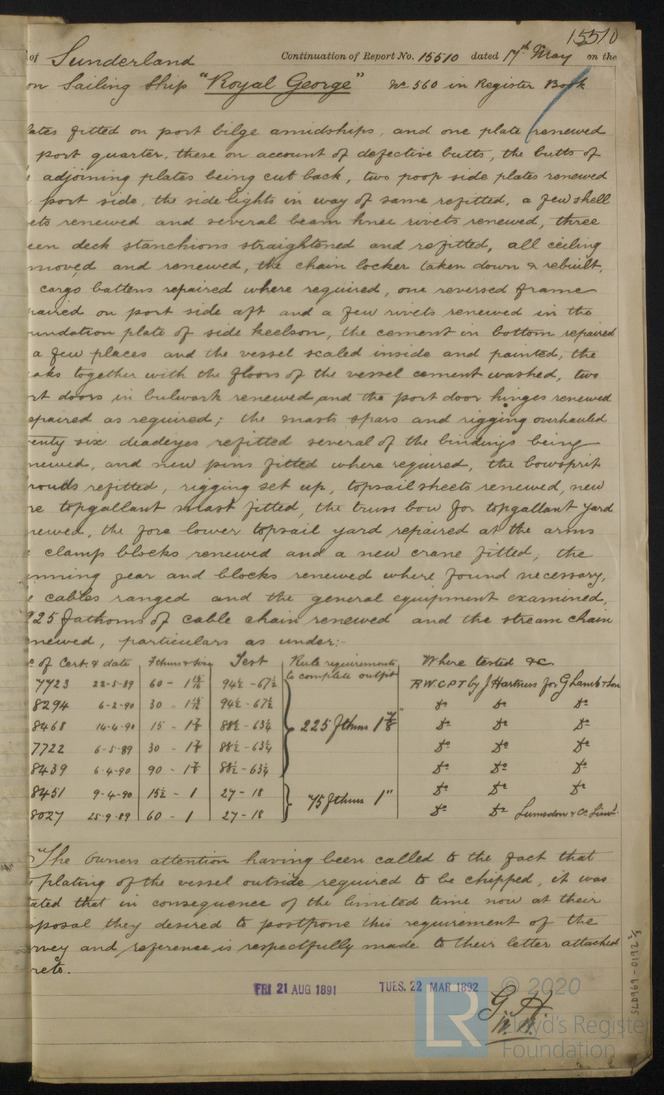 15510
of Sunderland Continuation of Report No. 15510 dated 17th May on the
on Sailing Ship "Royal George" No 560 in Register Book
lates fitted on port bilge amidships, and one plate renewed
port quarter, these on account of defective butts, the butts of
adjoining plates being cut back, two poop side plates renewed
port side, the side lights in way of same refitted, a few shell
ets renewed and several beam knee rivets renewed, three
een deck stanchions straightened and refitted, all ceiling
moved and renewed, the chain locker taken down & rebuilt,
cargo battens repaired where required, one reversed frame
paired on port side aft and a few rivets renewed in the
undation plate of side keelson, the cement in bottom repaired
a few places and the vessel scaled inside and painted, the
aks together with the floors of the vessel cement washed, two
rt doors in bulwark renewed and the port door hinges renewed
epaired as required; the masts spars and rigging overhauled
enty six deadeyes refitted several of the bindings being
newed, and new pins fitted where required, the bowsprit
rouds refitted, rigging set up, topsail sheets renewed, new
re topgallant mast fitted, the truss bow for topgallant yard
newed, the fore lower topsail yard repaired at the arms
clamp blocks renewed and a new crane fitted, the
nning gear and blocks renewed where found necessary,
cables ranged and the general equipment examined,
225 fathoms of cable chain renewed and the stream chain
newed, particulars as under:-
of Cert. & date Fthms & size Test Rule requirements to complete outfit Where tested &c.
7723 22-5-89 60 - 1 15/16 94½ - 67½ R.W.C.P.T by J Hartness for G Lamb & Son
8294 6-2-90 30 - 1 15/16 94½ - 67½ do do do
8468 14-4-90 15 - 1 7/8 88½ - 63¼ 225 fthms 1 7/8" do do do
7722 6-5-89 30 - 1 7/8 88½ - 63¼ do do do
8439 6-4-90 90 - 1 7/8 88½ - 63¼ do do do
8451 9-4-90 15½ - 1 27 - 18 75 fthms 1" do do do
8027 25-9-89 60 - 1 27 - 18 do do Lumsdon & Co Limd.
"The Owners attention having been called to the fact that
plating of the vessel outside required to be chipped, it was
ated that in consequence of the limited time now at their
sposal they desired to postpone this requirement of the
rvey and reference is respectfully made to their letter attached
reto.
FRI 21 AUG 1891 TUES. 22 MAR 1892
G.H.
W.W.
© 2020
LR Lloyd's Register
Foundation
SLD969-0192 2/2